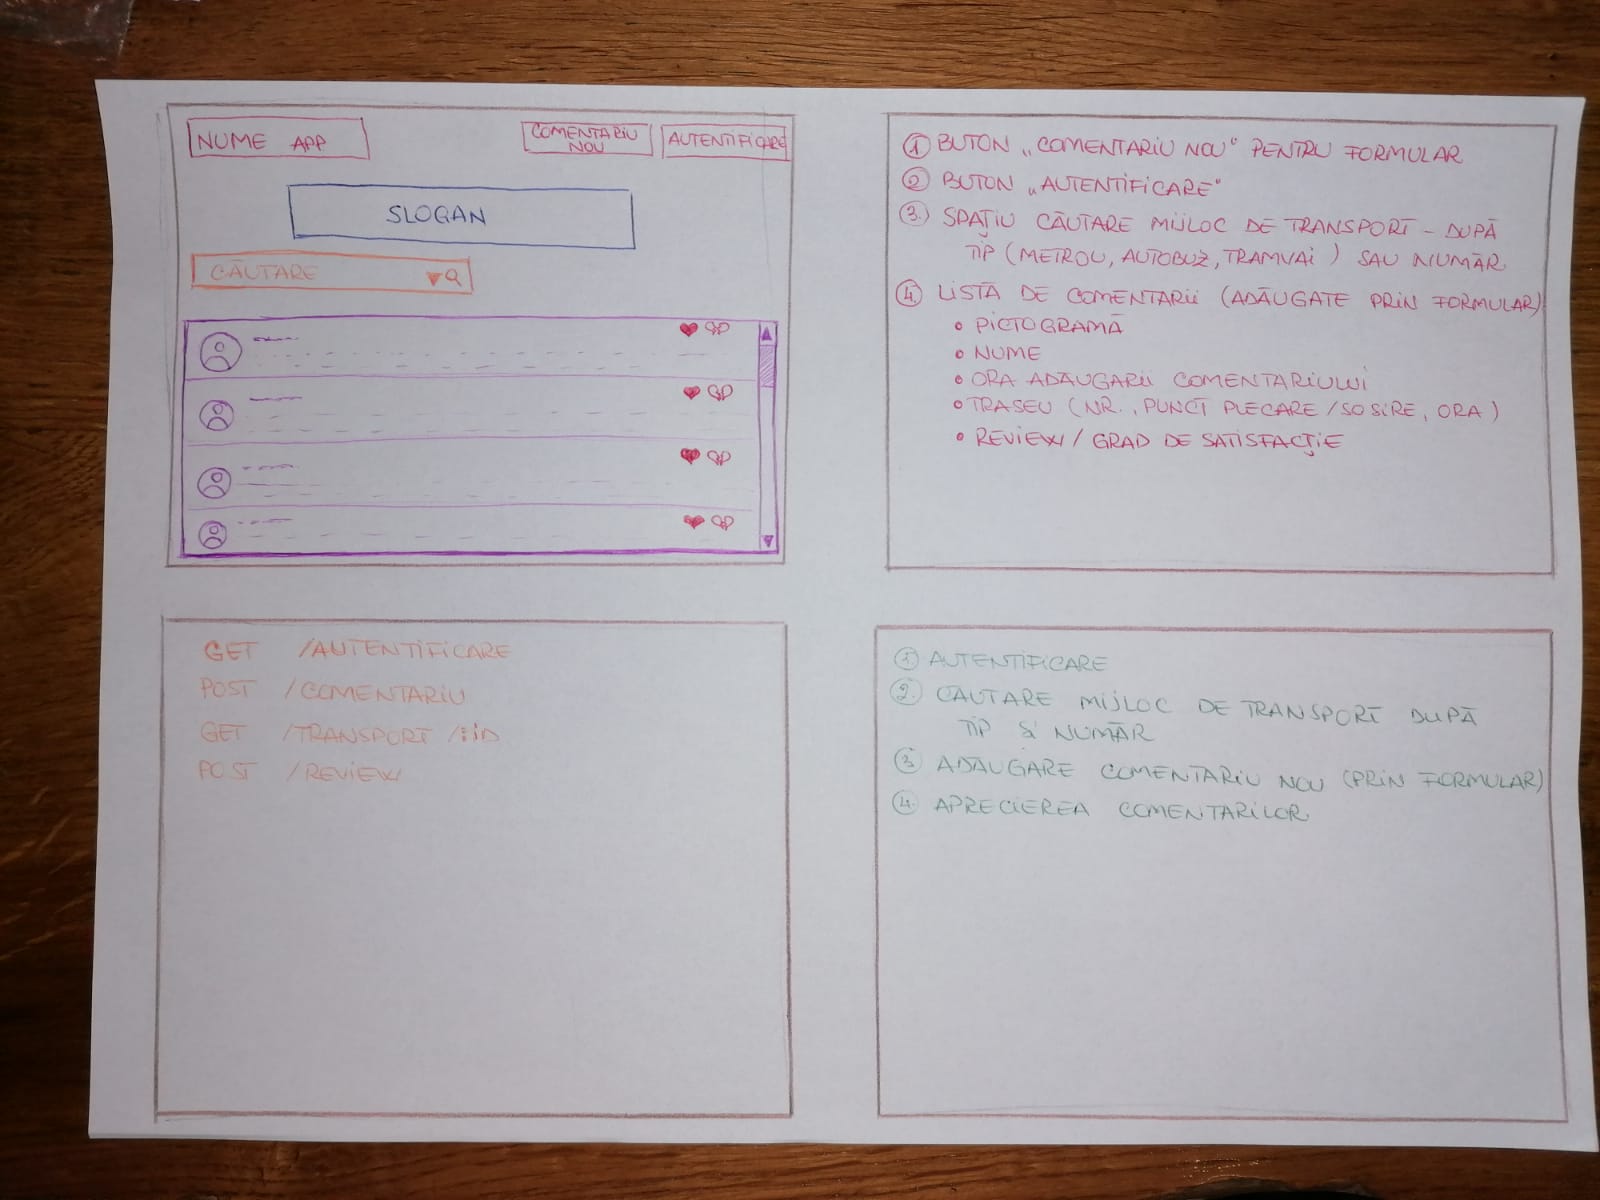 NUME APP
COMENTARIU
NOU
AUTENTIFICARE
SLOGAN
CĂUTARE
① BUTON „COMENTARIU NOU" PENTRU FORMULAR
② BUTON „AUTENTIFICARE"
③. SPAȚIU CĂUTARE MIJLOC DE TRANSPORT - DUPĂ
TIP (METROU, AUTOBUZ, TRAMVAI) SAU NUMĂR
④ LISTĂ DE COMENTARII (ADĂUGATE PRIN FORMULAR)
• PICTOGRAMĂ
• NUME
• ORA ADĂUGARII COMENTARIULUI
• TRASEU (NR., PUNCT PLECARE/SOSIRE, ORA)
• REVIEW/ GRAD DE SATISFACȚIE
GET /AUTENTIFICARE
POST /COMENTARIU
GET /TRANSPORT/:ID
POST /REVIEW
① AUTENTIFICARE
②. CĂUTARE MIJLOC DE TRANSPORT DUPĂ
TIP & NUMĂR
③ ADĂUGARE COMENTARIU NOU (PRIN FORMULAR)
④. APRECIEREA COMENTARILOR